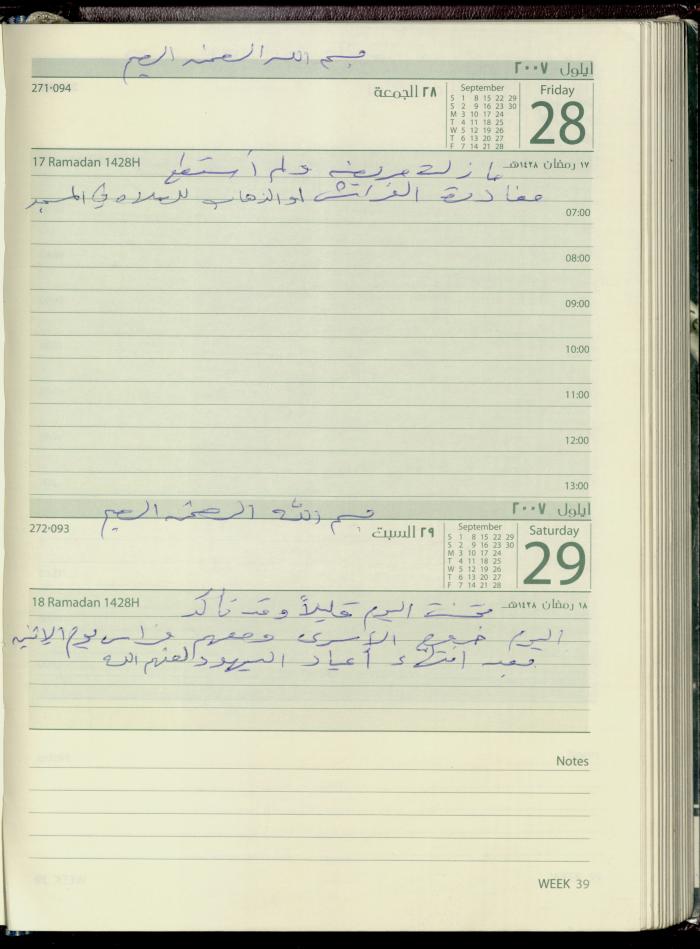 بسم الله الرحمن الرحيم
ايلول ٢٠٠٧
271-094
٢٨ الجمعة
September
S 1 8 15 22 29
S 2 9 16 23 30
M 3 10 17 24
T 4 11 18 25
W 5 12 19 26
T 6 13 20 27
F 7 14 21 28
Friday
28
17 Ramadan 1428H
١٧ رمضان ١٤٢٨هـ
ما زلت مريضه ولم أستطع
مغادرة الفراش او الذهاب للصلاه في المسجد
07:00
08:00
09:00
10:00
11:00
12:00
13:00
بسم الله الرحمن الرحيم
ايلول ٢٠٠٧
272-093
٢٩ السبت
September
S 1 8 15 22 29
S 2 9 16 23 30
M 3 10 17 24
T 4 11 18 25
W 5 12 19 26
T 6 13 20 27
F 7 14 21 28
Saturday
29
18 Ramadan 1428H
١٨ رمضان ١٤٢٨هـ
تحسنت اليوم قليلاً وقد تأكد
اليوم خروج الأسرى ومعهم فراس يوم الإثنين
بعد انتهاء أعياد اليهود لعنهم الله
Notes
WEEK 39